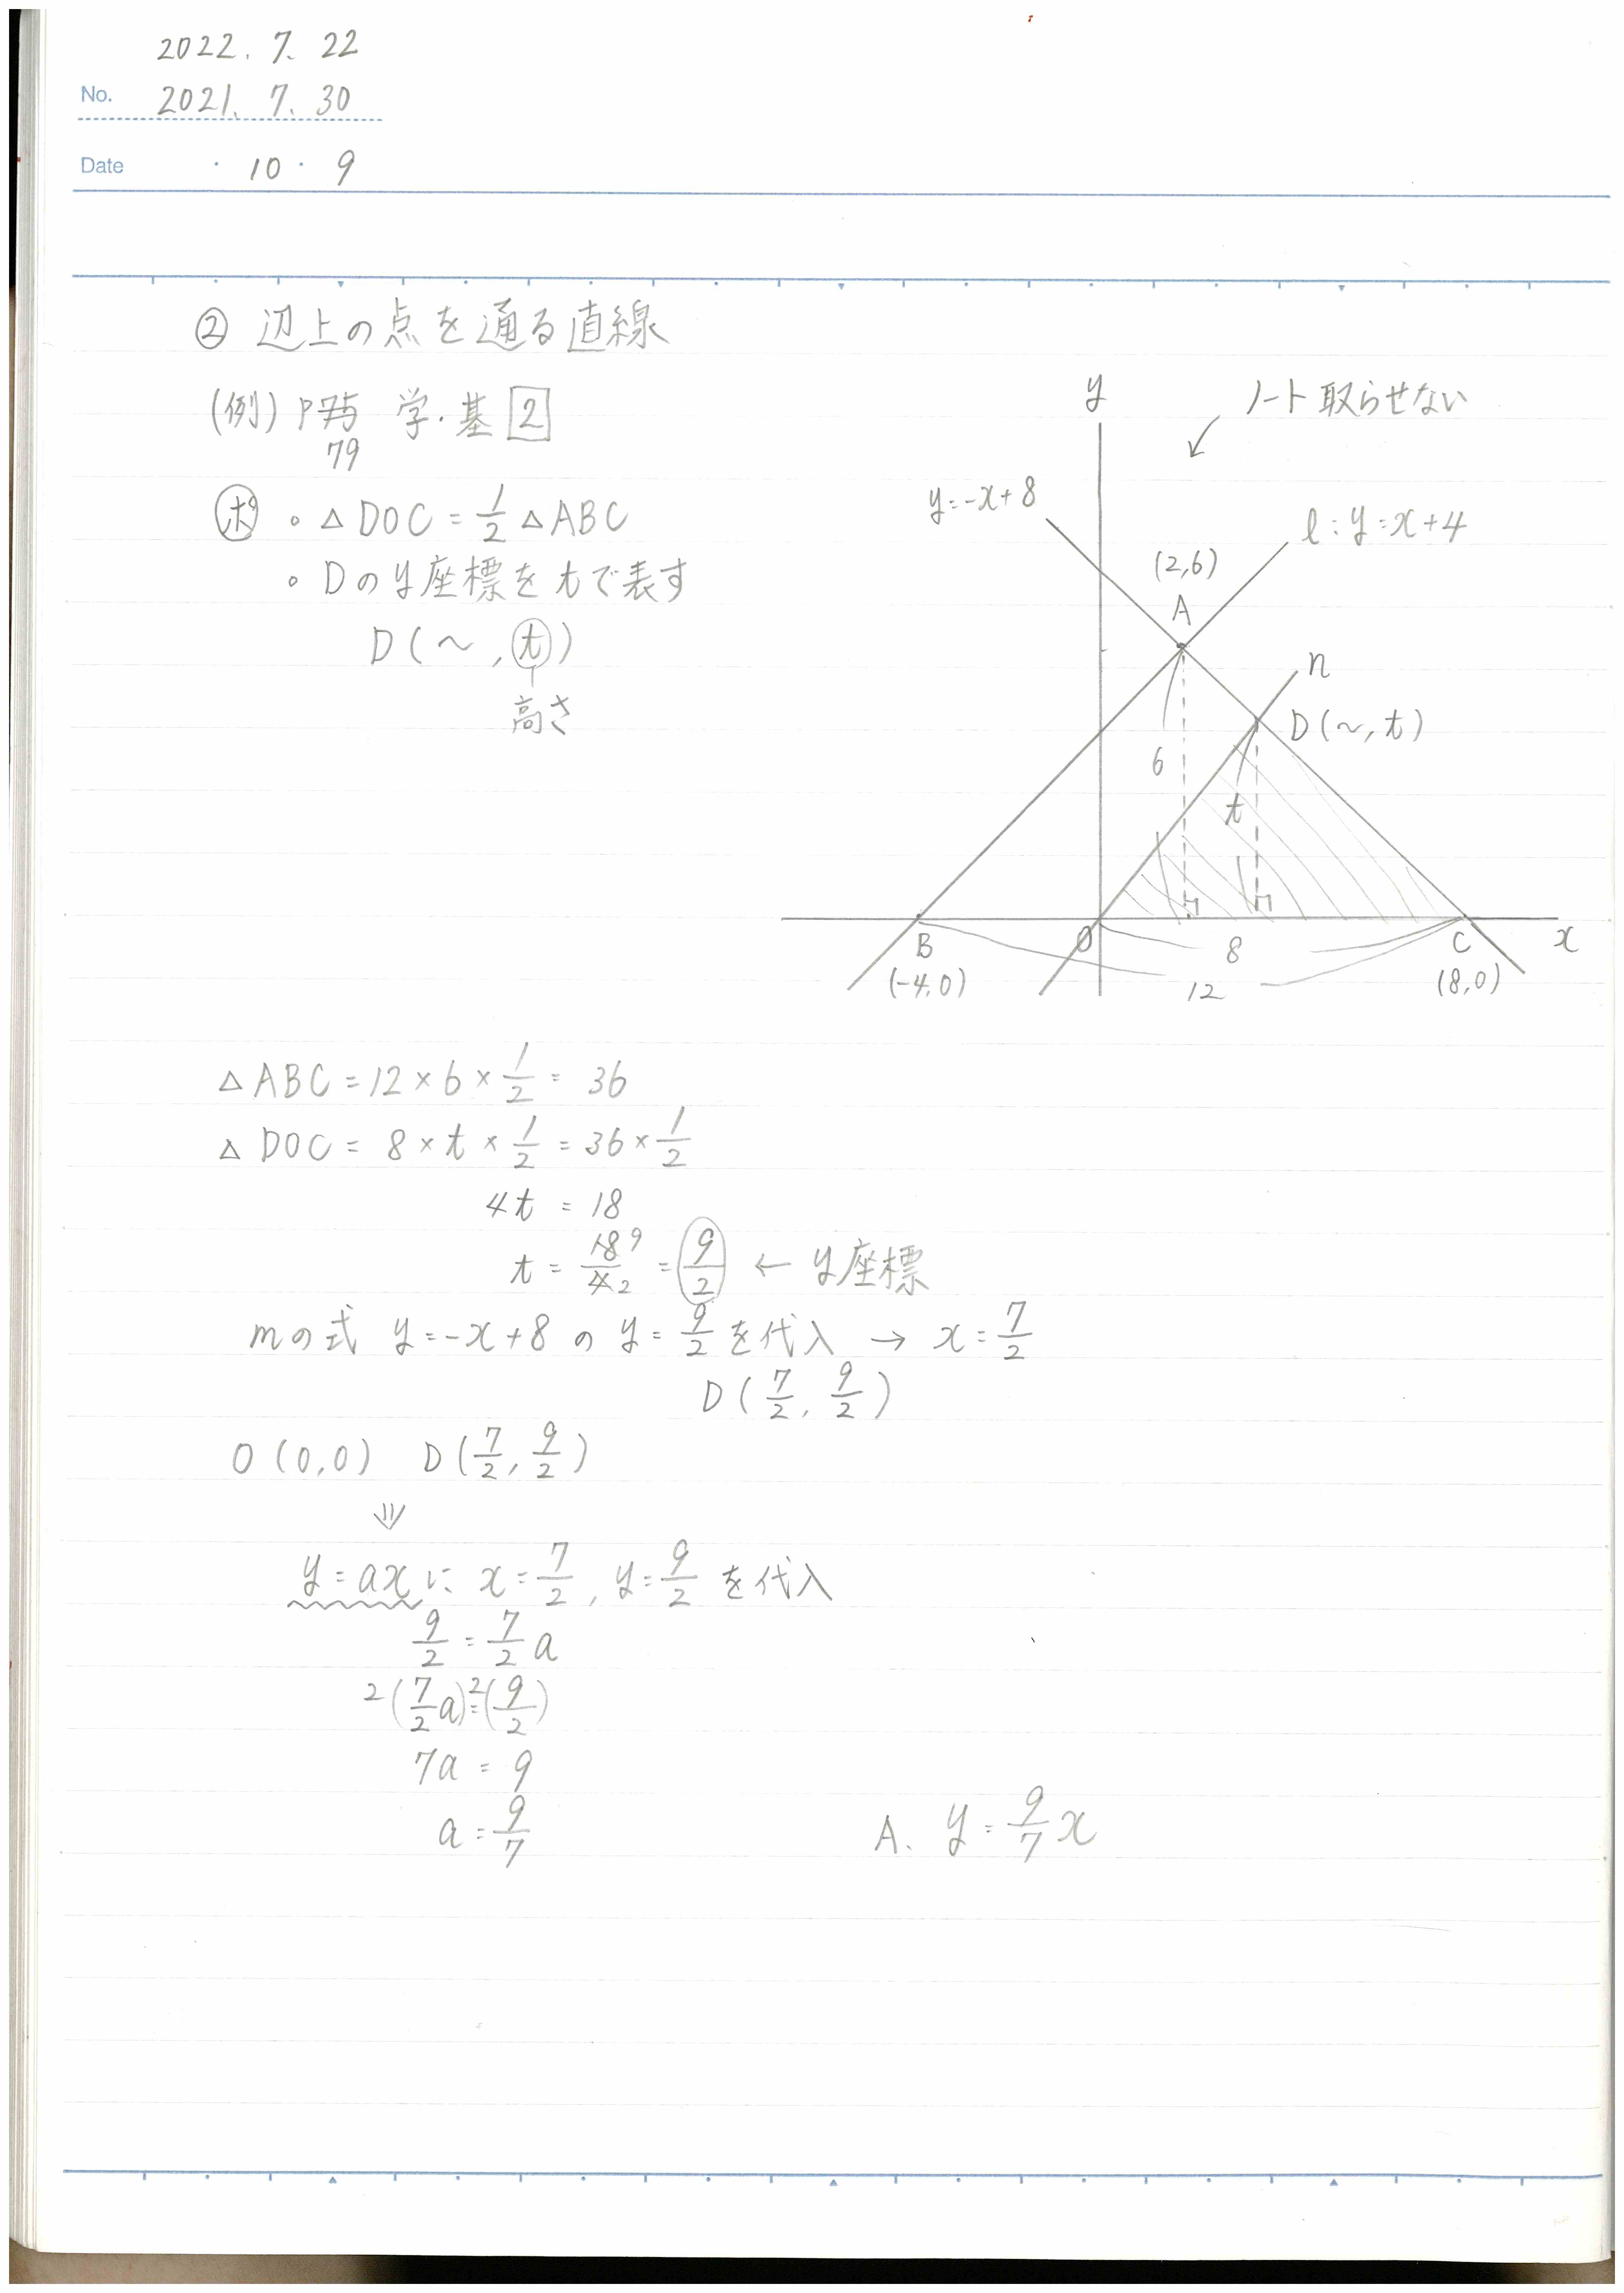 2022. 7. 22
No. 2021. 7. 30
Date ・10・9
② 辺上の点を通る直線
(例) P 学・基 2
79
ポ 。△DOC = 1/2 △ABC
。Dのy座標をtで表す
D(～, t)
高さ
y
ノート取らせない
y=-x+8
l:y=x+4
(2,6)
A
n
D(～, t)
6
t
B
O
8
C
x
(-4,0)
12
(8,0)
△ABC = 12 × 6 × 1/2 = 36
△DOC = 8 × t × 1/2 = 36 × 1/2
4t = 18
t = 18 9/4 2 = 9/2 ← y座標
mの式 y=-x+8 の y=9/2を代入 → x=7/2
D(7/2, 9/2)
O(0,0) D(7/2, 9/2)
y=axに x=7/2, y=9/2 を代入
9/2 = 7/2 a
2(7/2 a) = 2(9/2)
7a = 9
a = 9/7
A. y = 9/7 x